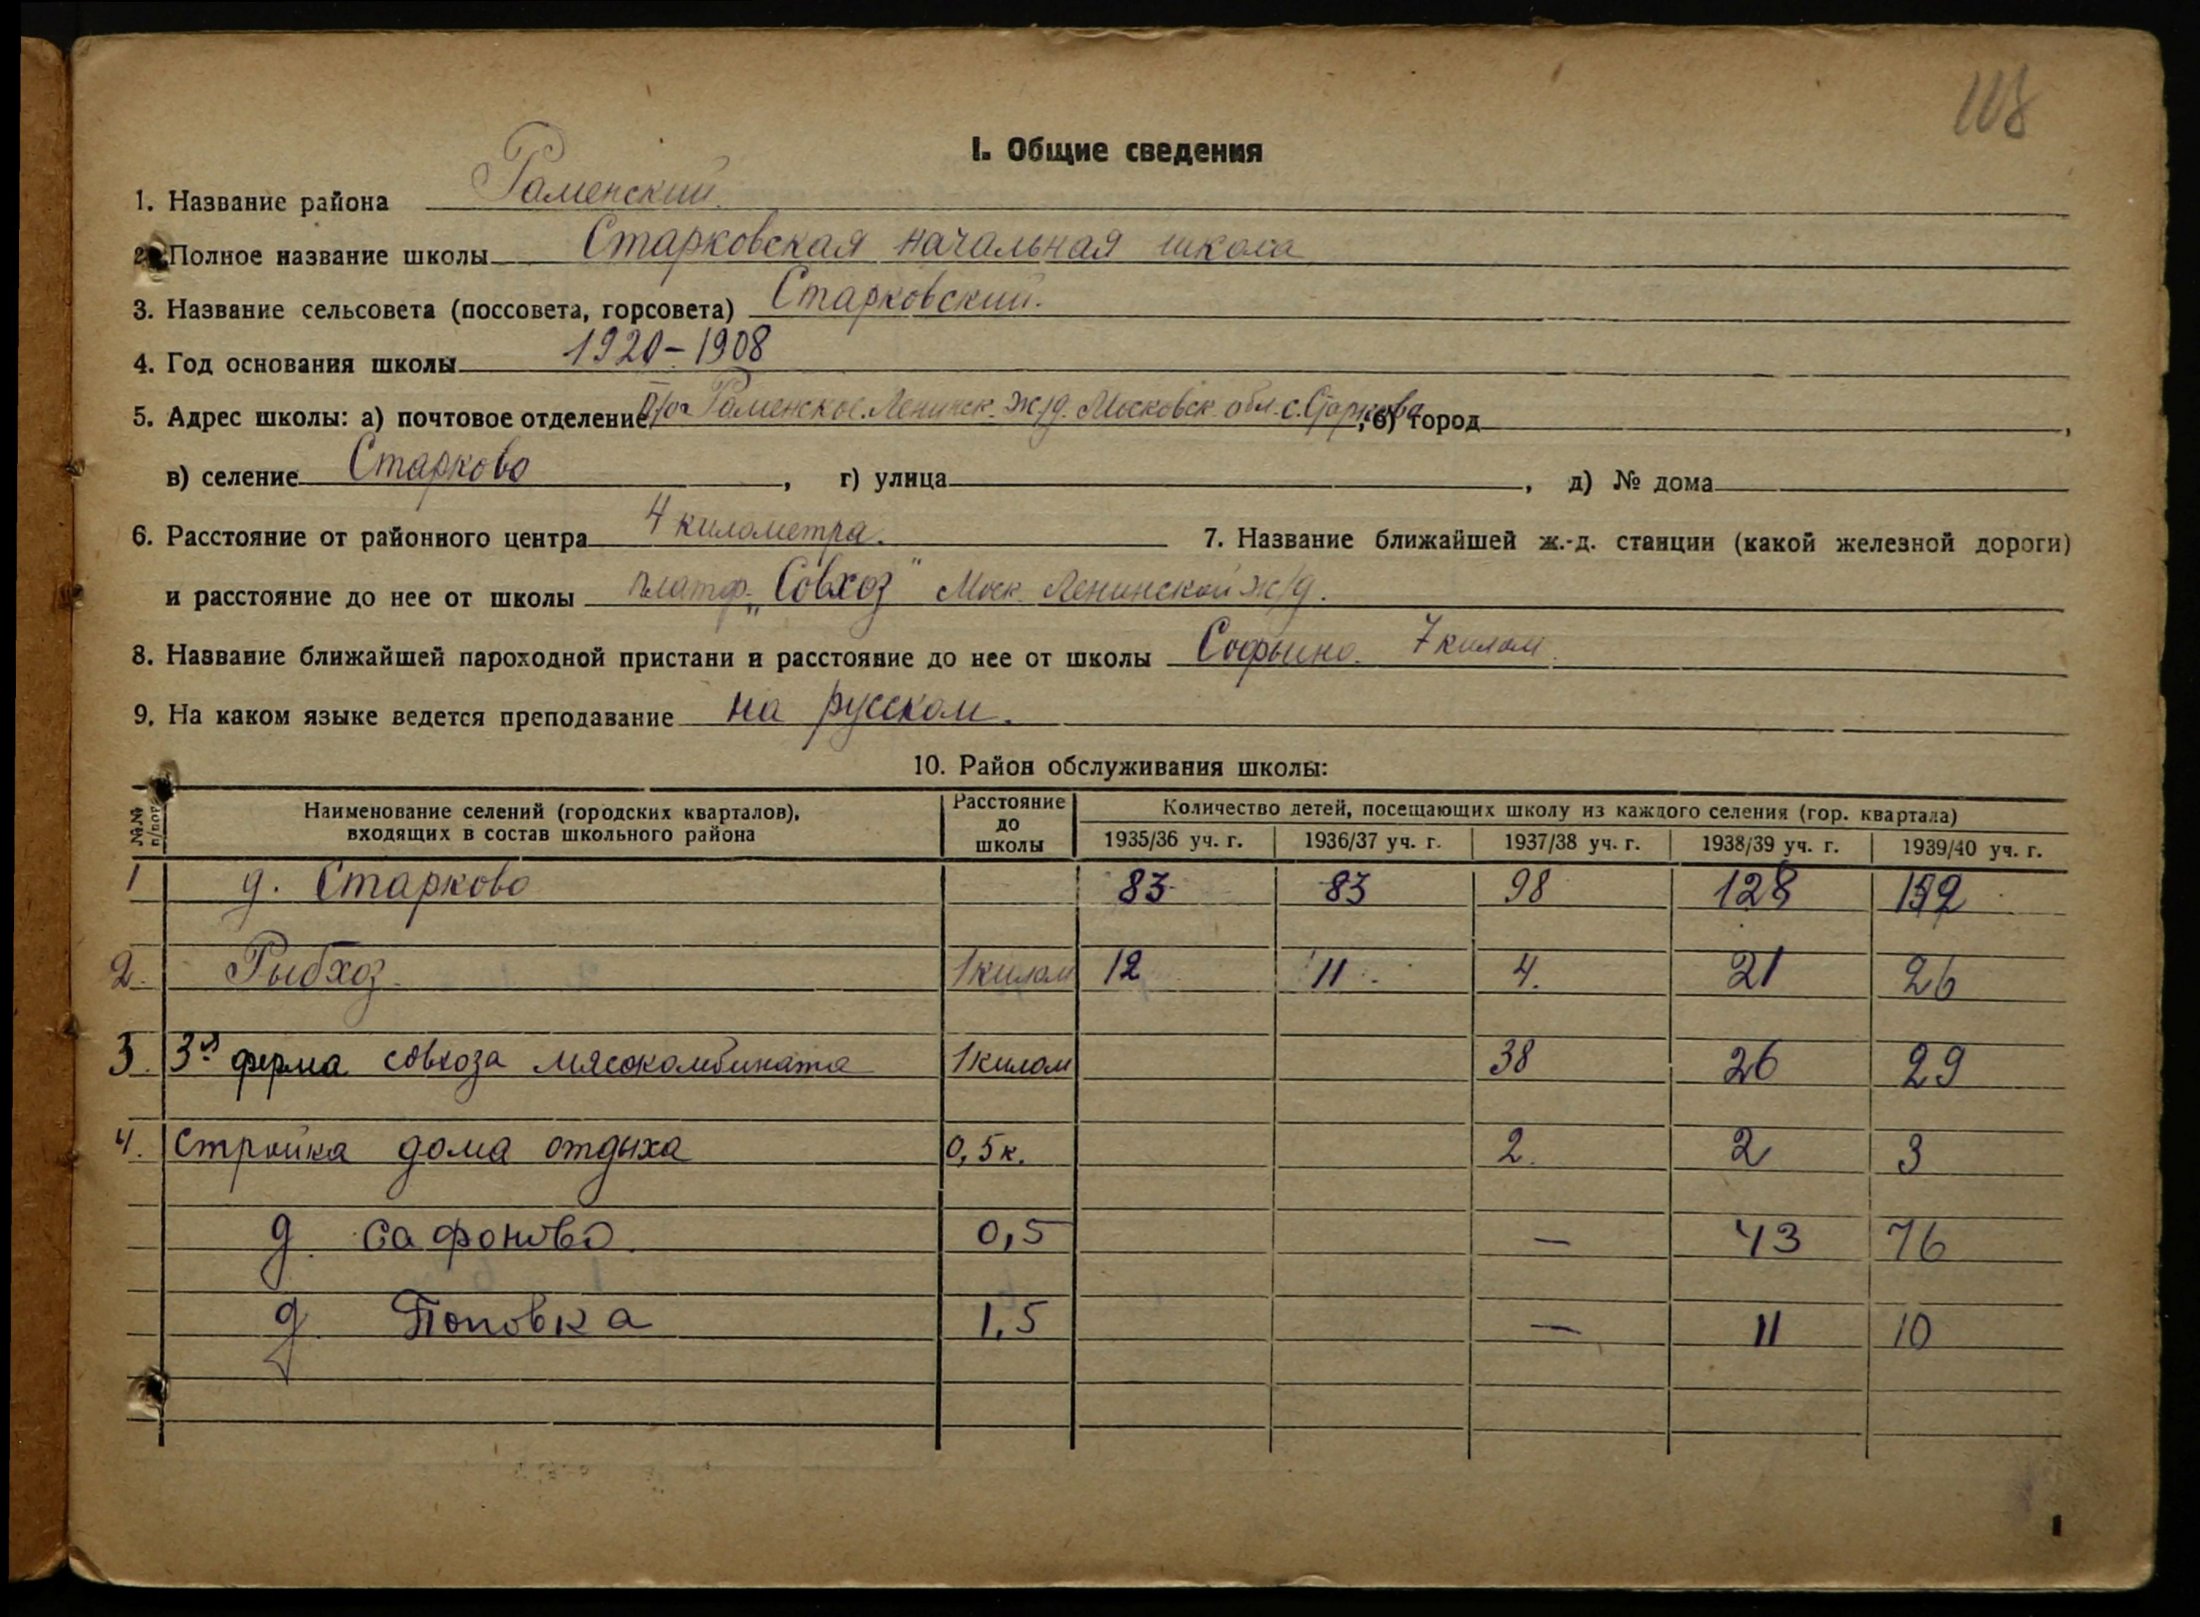 108
I. Общие сведения
1. Название района Раменский.
2. Полное название школы Старковская начальная школа
3. Название сельсовета (поссовета, горсовета) Старковский.
4. Год основания школы 1920-1908
5. Адрес школы: а) почтовое отделение П/о Раменское. Ленинск. ж/д. Московск. обл. с. Старково, б) город ,
в) селение Старково, г) улица , д) № дома
6. Расстояние от районного центра 4 километра. 7. Название ближайшей ж.-д. станции (какой железной дороги)
и расстояние до нее от школы платф. „Совхоз" Моск. Ленинской ж/д.
8. Название ближайшей пароходной пристани и расстояние до нее от школы Софьино. 7 килом.
9. На каком языке ведется преподавание на русском.
10. Район обслуживания школы:
№№ п/пор. Наименование селений (городских кварталов), входящих в состав школьного района Расстояние до школы Количество детей, посещающих школу из каждого селения (гор. квартала)
1935/36 уч. г. 1936/37 уч. г. 1937/38 уч. г. 1938/39 уч. г. 1939/40 уч. г.
1 д. Старково 83 83 98 128
2. Рыбхоз. 1 килом 12 11. 4. 21 26
3. 3я ферма совхоза мясокомбината 1 килом 38 26 29
4. Стройка дома отдыха 0,5 к. 2. 2 3
д. Сафоново. 0,5 — 43 76
д. Поповка 1,5 — 11 10
1